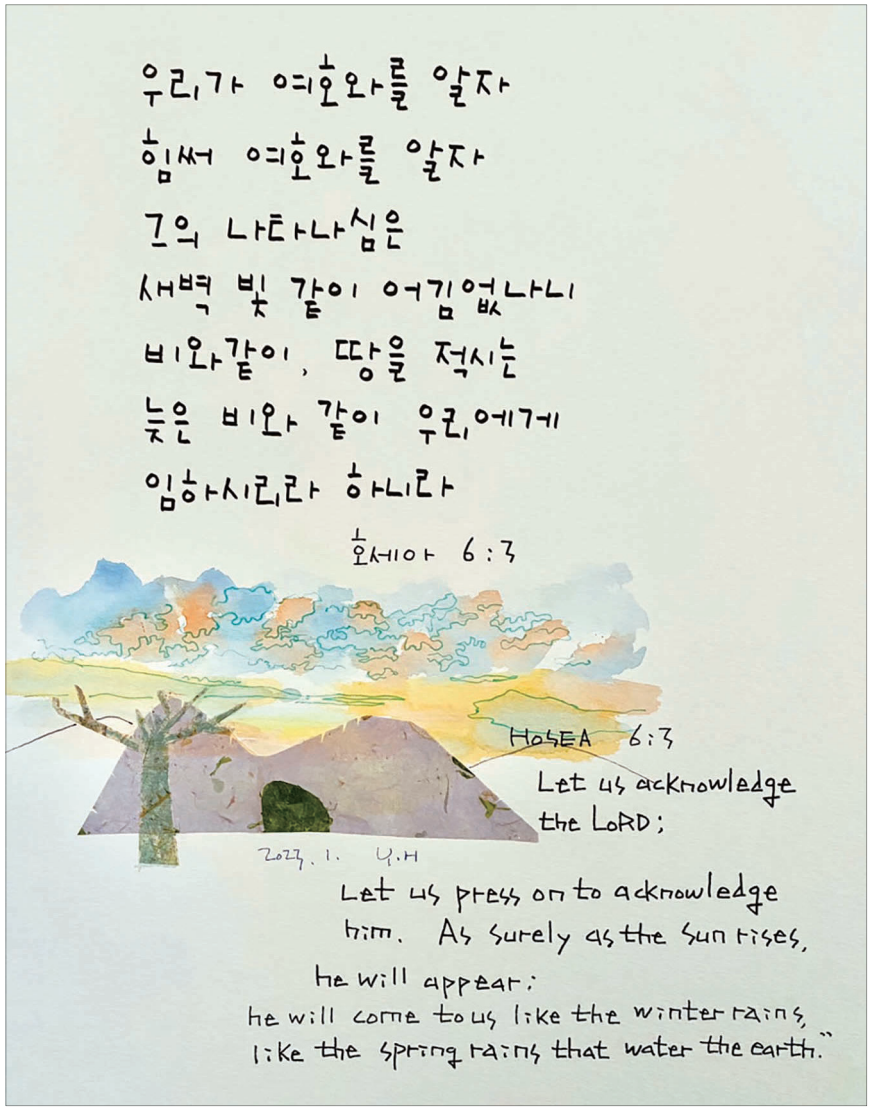 우리가 여호와를 알자
힘써 여호와를 알자
그의 나타나심은
새벽 빛 같이 어김없나니
비와같이, 땅을 적시는
늦은 비와 같이 우리에게
임하시리라 하니라
호세아 6:3
HOSEA 6:3
Let us acknowledge
the LORD;
2023.1. Y.H
Let us press on to acknowledge
him. As surely as the sun rises,
he will appear;
he will come to us like the winter rains,
like the spring rains that water the earth."